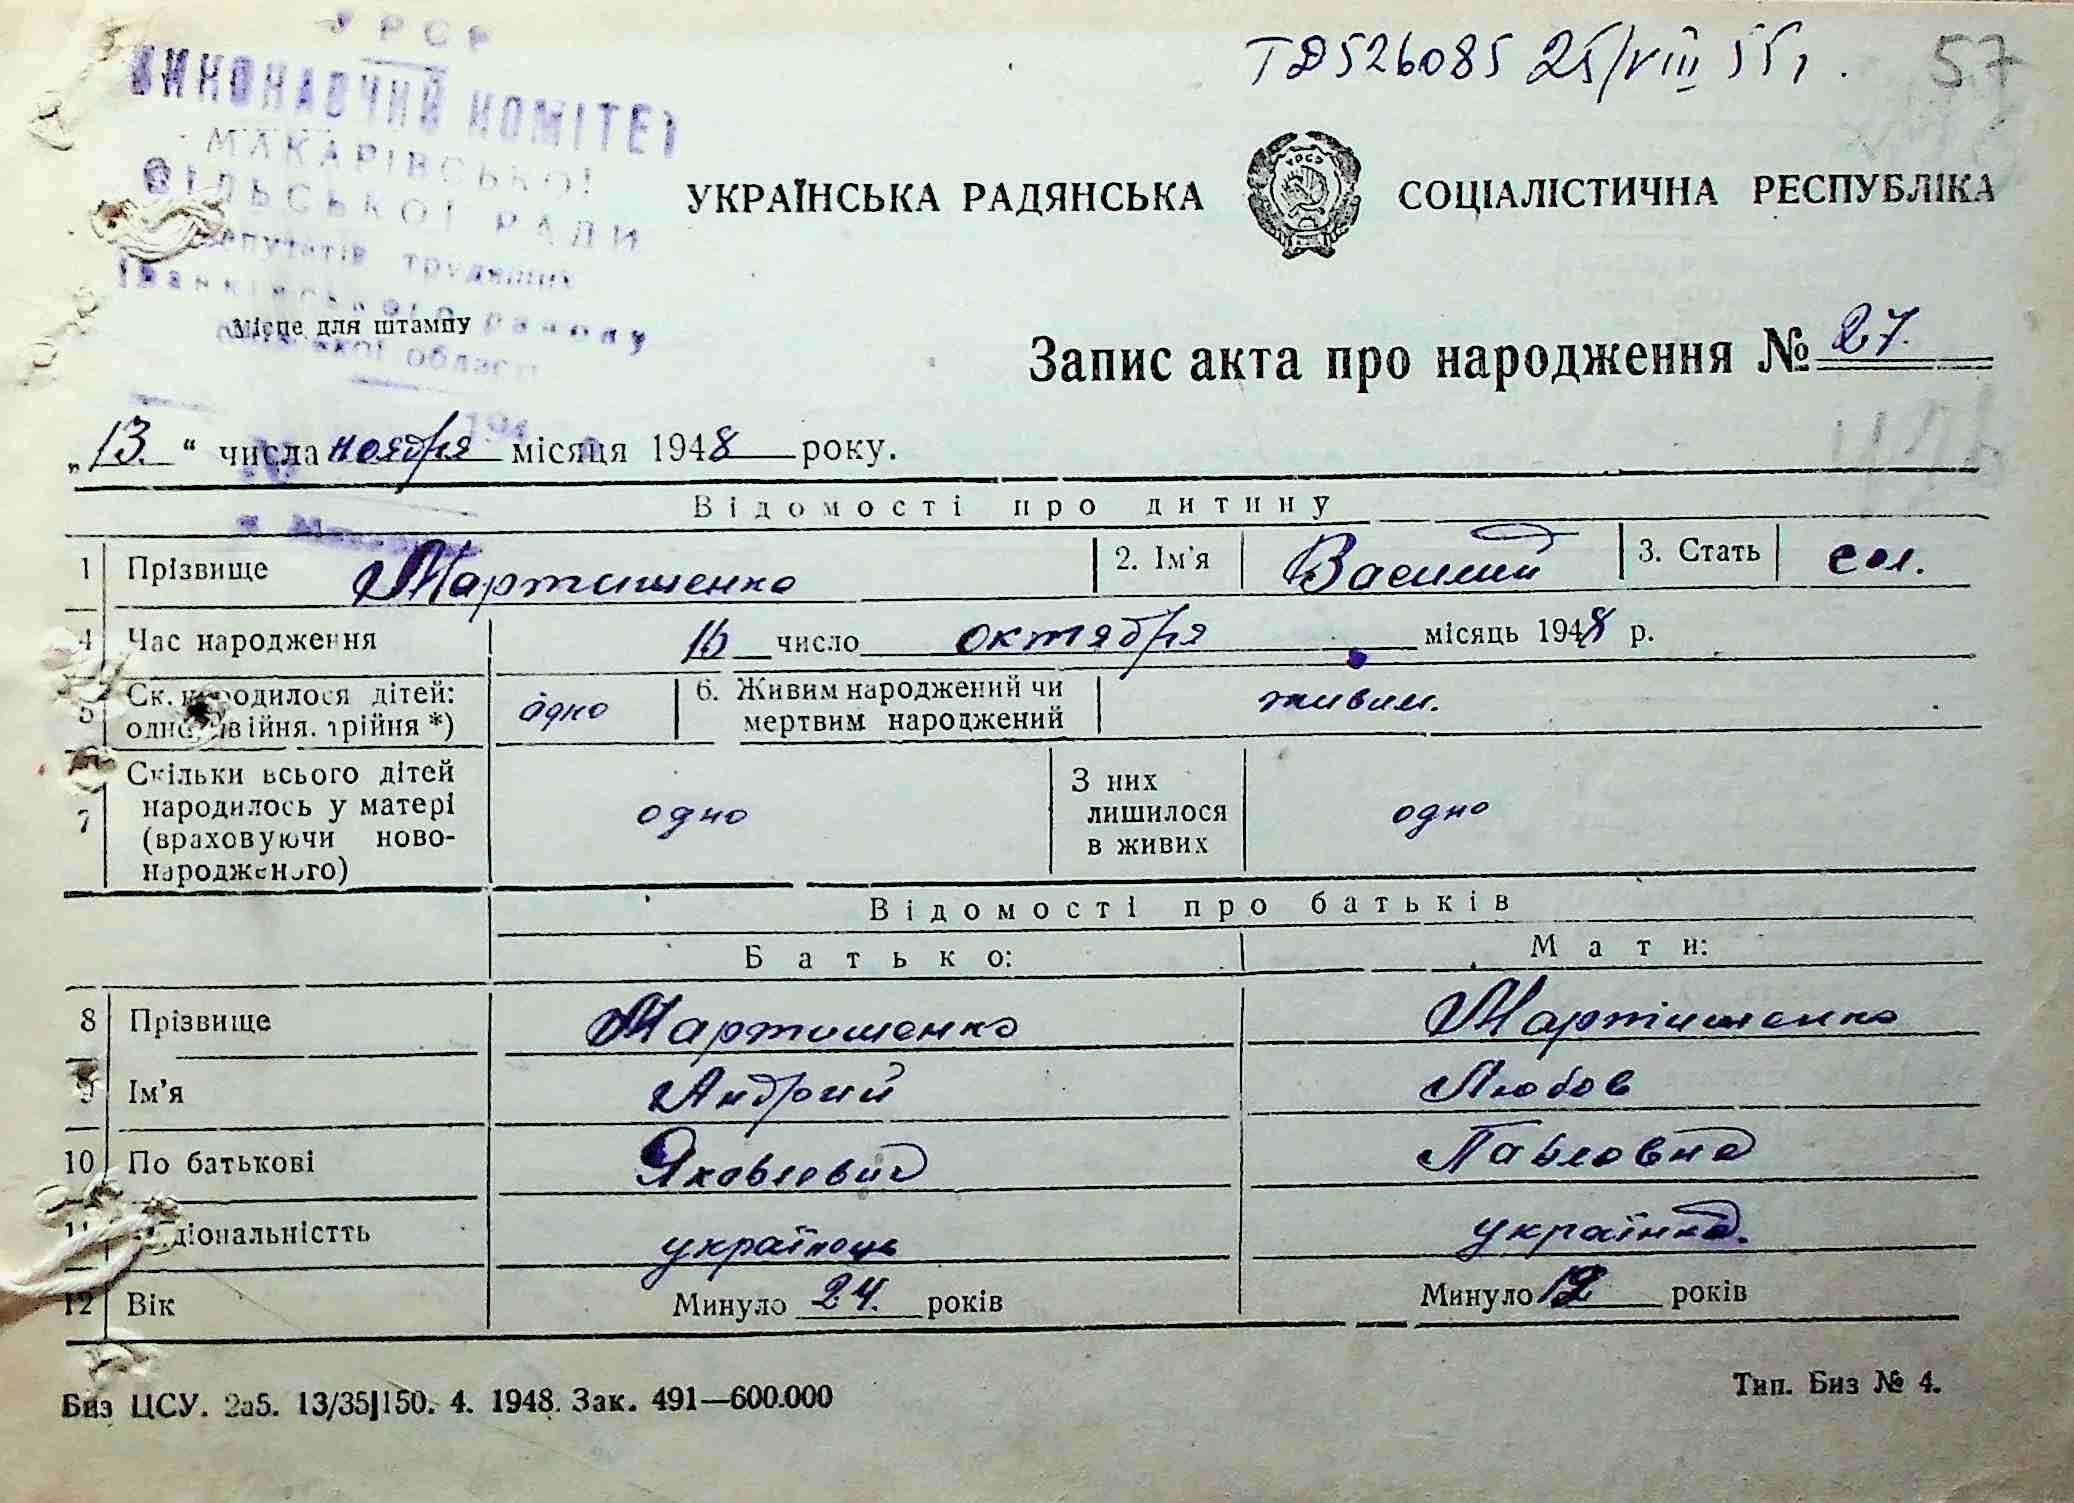 УРСР
ВИКОНАВЧИЙ КОМІТЕТ
МАКАРІВСЬКОЇ
СІЛЬСЬКОЇ РАДИ
депутатів трудящих
Іванківського району
області
194
ТД526085 25/VIII 55 г.
57
УКРАЇНСЬКА РАДЯНСЬКА СОЦІАЛІСТИЧНА РЕСПУБЛІКА
УРСР
Місце для штампу
Запис акта про народження № 27.
„13.“ числа ноября місяця 1948 року.
Відомості про дитину
1 Прізвище Мартишенко 2. Ім'я Василий 3. Стать
4 Час народження 16 число октября місяць 1948 р.
5 Ск. народилося дітей: одно, двійня, трійня *) одно 6. Живим народжений чи мертвим народжений живим.
7 Скільки всього дітей народилось у матері (враховуючи ново-народженого) одно З них лишилося в живих одно
Відомості про батьків
Батько: Мати:
8 Прізвище Мартишенко Мартишенко
9 Ім'я Андрий Любов
10 По батькові Яковлевич Павловна
11 Національністть українець українка.
12 Вік Минуло 24. років Минуло років
Биз ЦСУ. 2а5. 13/35|150. 4. 1948. Зак. 491—600.000
Тип. Биз № 4.